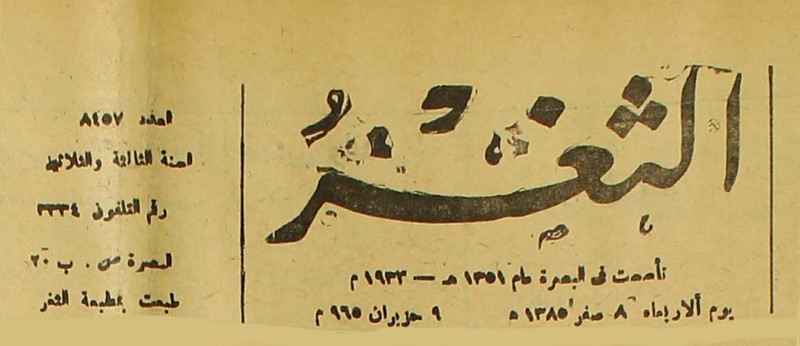 الثغر
تأسست في البصرة عام ١٣٥١ هـ — ١٩٣٣ م
يوم ألاربعاء ٨ صفر ١٣٨٥ هـ ٩ حزيران ٩٦٥ م
العدد ٨٤٥٧
السنة الثالثة والثلاثون
رقم التلفون ٣٣٣٤
البصرة ص . ب ٢٠
طبعت بمطبعة الثغر